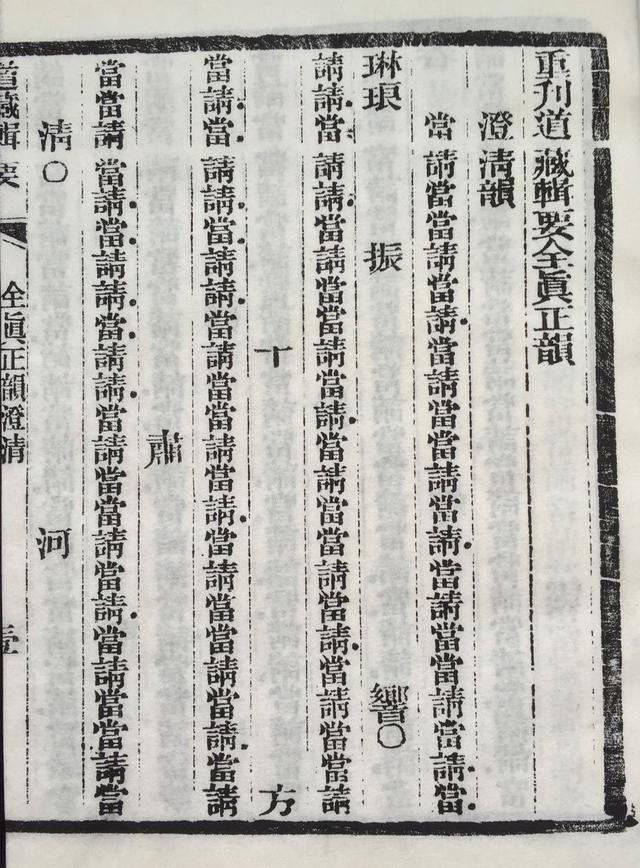 重刋道藏輯要全眞正韻
澄清韻
當請當當請當請當請當當請當請當請當當請當請當
琳琅 振 響○
請請當請請當請當當請當請當請當當請當請當請當當請
十 方
當請當請請當請請當請當當請當請當請當當請當請當請
肅
當當請當請當請請當請請當請當當請當請當請當當請當
清○ 河
道藏輯要 全眞正韻澄清 壹